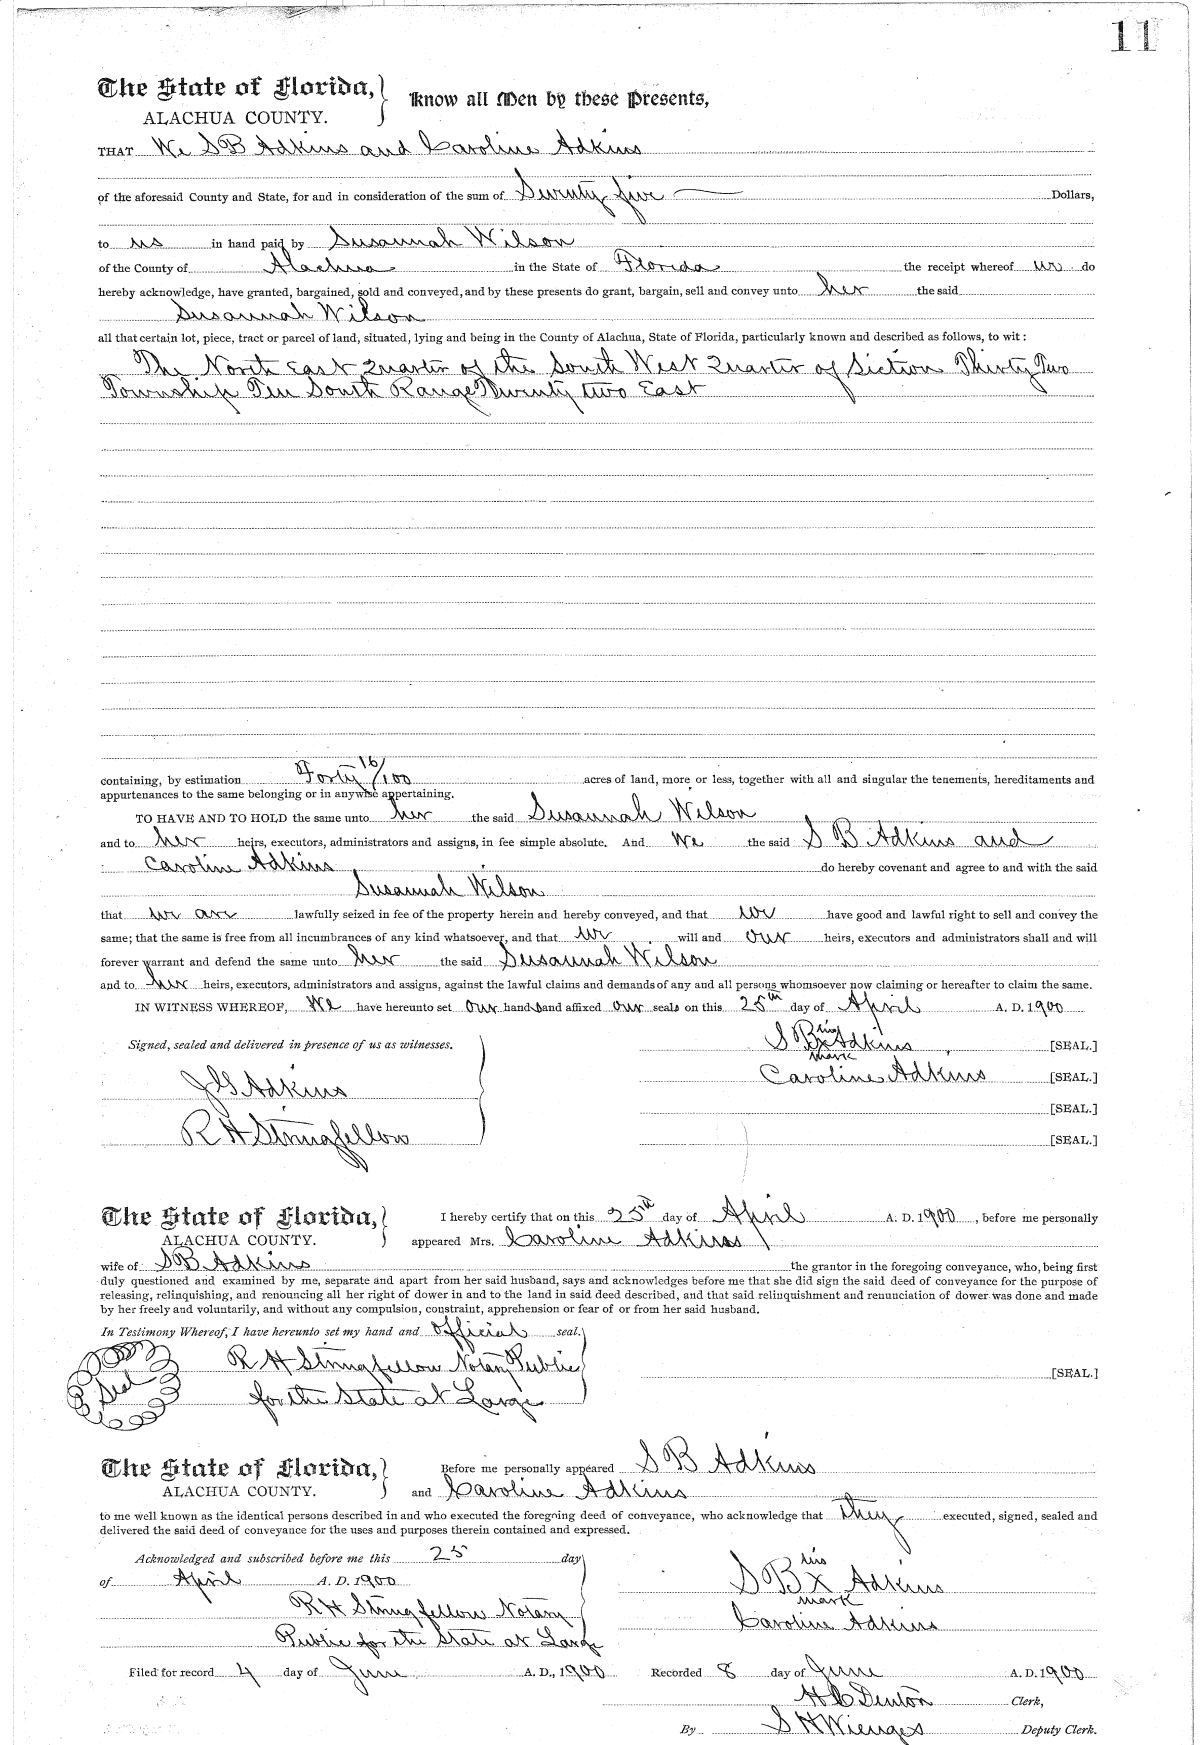 11
The State of Florida,
ALACHUA COUNTY.
Know all Men by these Presents,
THAT We S B Adkins and Caroline Adkins
of the aforesaid County and State, for and in consideration of the sum of Twenty five Dollars,
to us in hand paid by Susannah Wilson
of the County of Alachua in the State of Florida the receipt whereof we do
hereby acknowledge, have granted, bargained, sold and conveyed, and by these presents do grant, bargain, sell and convey unto her the said
Susannah Wilson
all that certain lot, piece, tract or parcel of land, situated, lying and being in the County of Alachua, State of Florida, particularly known and described as follows, to wit:
The North East Quarter of the South West Quarter of Section Thirty Two
Township Ten South Range Twenty two East
containing, by estimation Forty 16/100 acres of land, more or less, together with all and singular the tenements, hereditaments and
appurtenances to the same belonging or in anywise appertaining.
TO HAVE AND TO HOLD the same unto her the said Susannah Wilson
and to her heirs, executors, administrators and assigns, in fee simple absolute. And We the said S B Adkins and
Caroline Adkins do hereby covenant and agree to and with the said
Susannah Wilson
that we are lawfully seized in fee of the property herein and hereby conveyed, and that we have good and lawful right to sell and convey the
same; that the same is free from all incumbrances of any kind whatsoever, and that we will and our heirs, executors and administrators shall and will
forever warrant and defend the same unto her the said Susannah Wilson
and to her heirs, executors, administrators and assigns, against the lawful claims and demands of any and all persons whomsoever now claiming or hereafter to claim the same.
IN WITNESS WHEREOF, We have hereunto set our hands and affixed our seals on this 25th day of April A. D. 1900
Signed, sealed and delivered in presence of us as witnesses.
his
S B x Adkins [SEAL.]
mark
J G Adkins
Caroline Adkins [SEAL.]
[SEAL.]
R H Stringfellow
[SEAL.]
The State of Florida,
ALACHUA COUNTY.
I hereby certify that on this 25th day of April A. D. 1900, before me personally
appeared Mrs. Caroline Adkins
wife of S B Adkins the grantor in the foregoing conveyance, who, being first
duly questioned and examined by me, separate and apart from her said husband, says and acknowledges before me that she did sign the said deed of conveyance for the purpose of
releasing, relinquishing, and renouncing all her right of dower in and to the land in said deed described, and that said relinquishment and renunciation of dower was done and made
by her freely and voluntarily, and without any compulsion, constraint, apprehension or fear of or from her said husband.
In Testimony Whereof, I have hereunto set my hand and official seal.
Seal
R H Stringfellow Notary Public
[SEAL.]
for the State at Large
The State of Florida,
ALACHUA COUNTY.
Before me personally appeared S B Adkins
and Caroline Adkins
to me well known as the identical persons described in and who executed the foregoing deed of conveyance, who acknowledge that they executed, signed, sealed and
delivered the said deed of conveyance for the uses and purposes therein contained and expressed.
Acknowledged and subscribed before me this 25 day
of April A. D. 1900
his
S B x Adkins
mark
R H Stringfellow Notary
Caroline Adkins
Public for the State at Large
Filed for record 4 day of June A. D., 1900 Recorded 8 day of June A. D. 1900
H C Denton Clerk,
By S H Wienges Deputy Clerk.